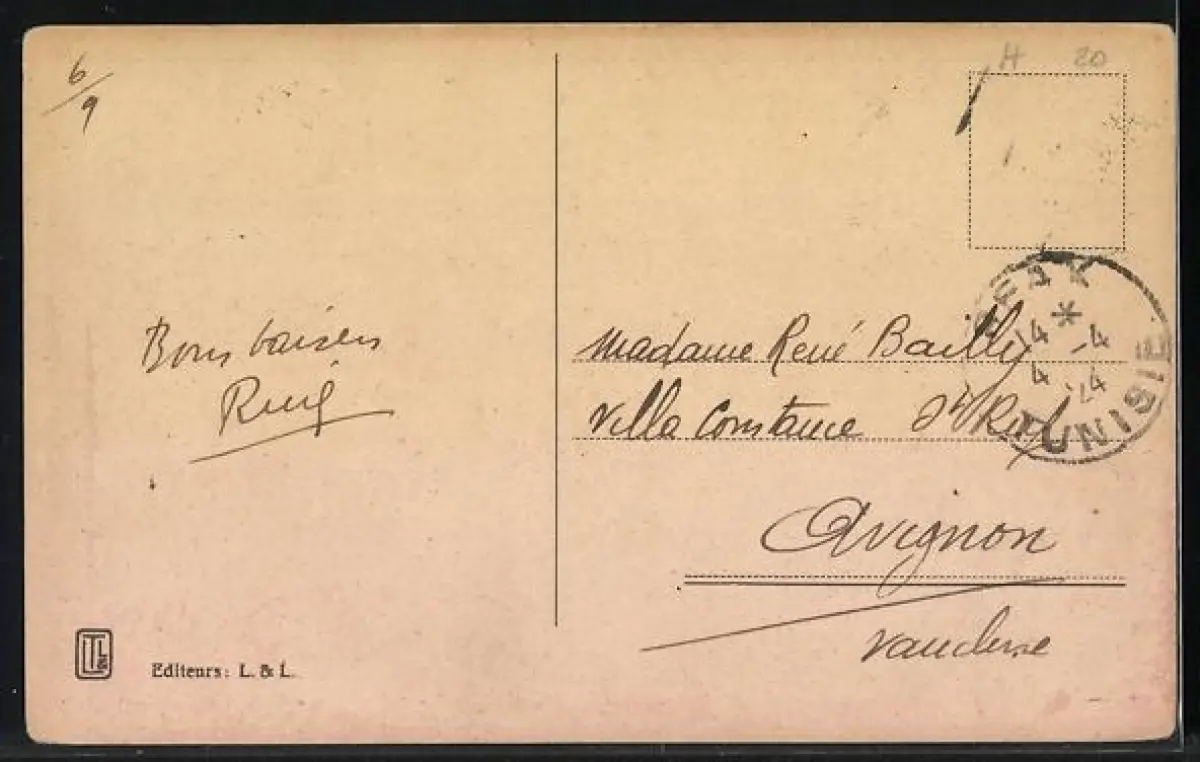 6/9
H 20
FAK
*
14 -4
4 24
TUNISIE
Bons baisers
René
Madame René Bailly
Villa Constance St Ruf
Avignon
Vaucluse
Editeurs: L. & L.